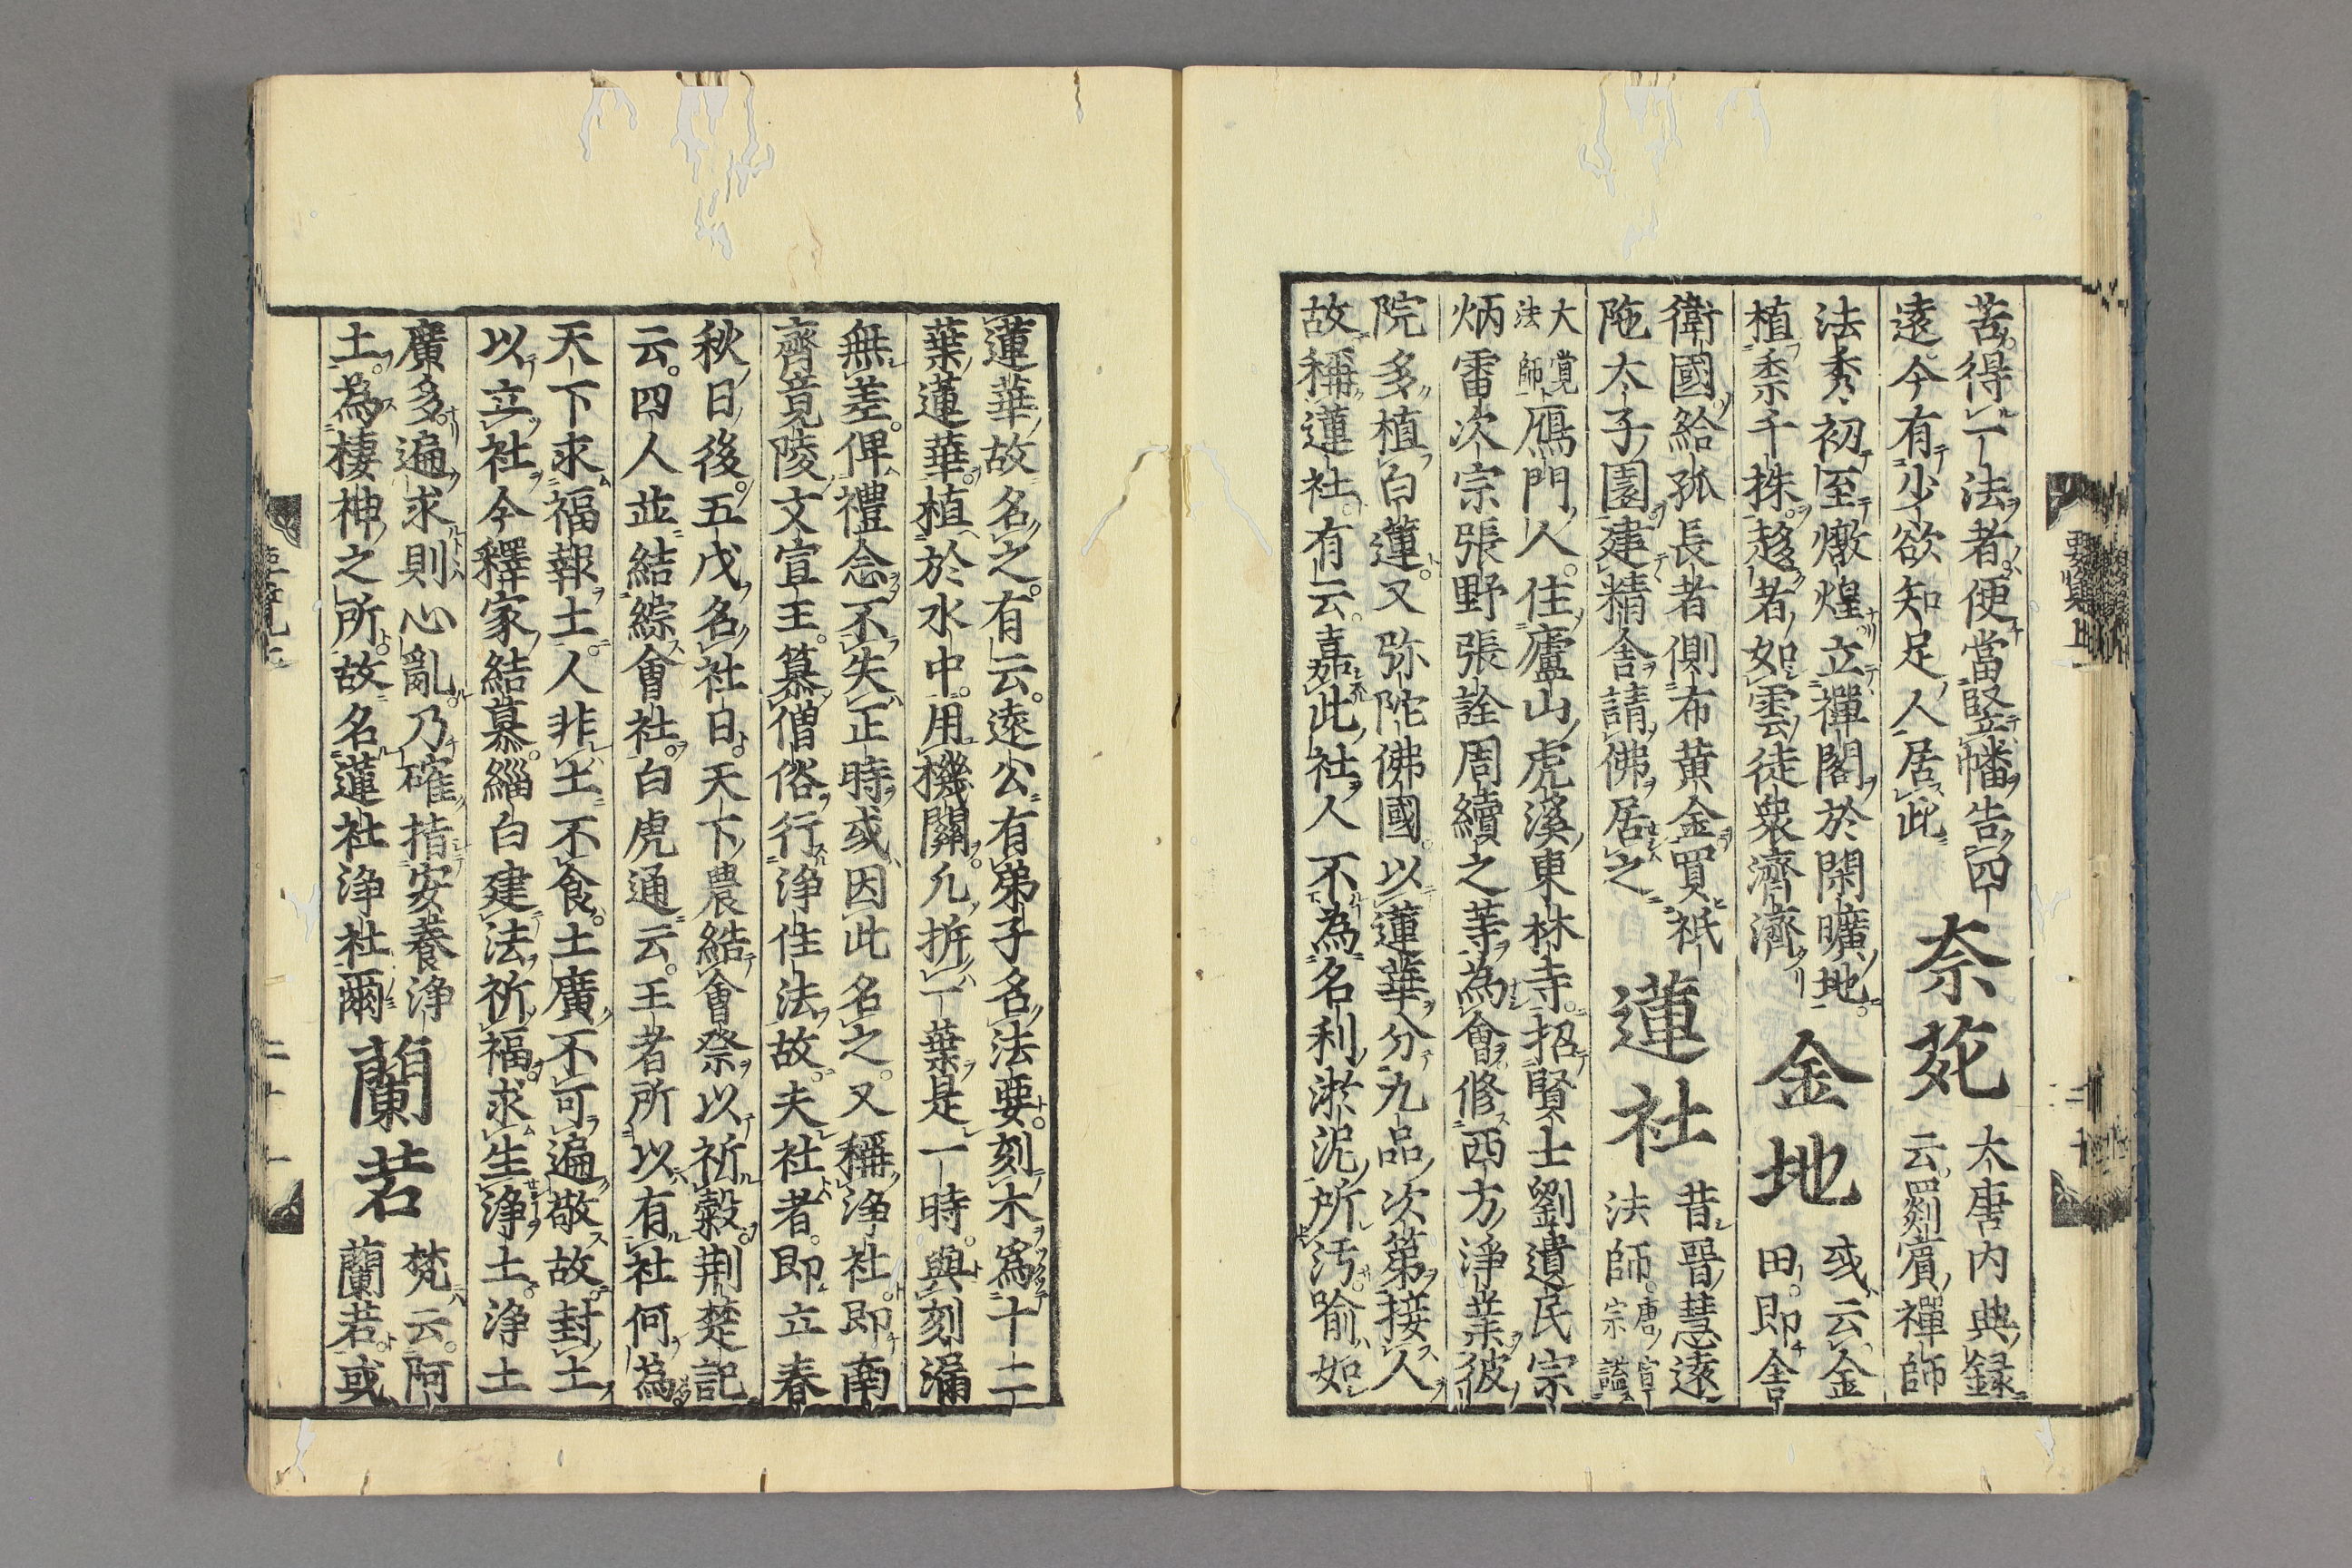 苦得一法者便當竪幡告四
遠今有少欲知足人居此
奈苑
太唐内典録
云罽賓禪師
法秀初至燉煌立禪閣於閑曠地
植柰千株趍者如雲徒衆濟濟
金地
或云金
田即舎
衛國給孤長者側布黄金買祇
陁太子園建精舎請佛居之
蓮社
昔晋慧遠
法師唐宣宗謚
大覚法師鴈門人住廬山虎溪東林寺招賢士劉遺民宗
炳雷次宗張野張詮周續之等為會修西方淨業彼
院多植白蓮又弥陀佛國以蓮華分九品次第接人
故稱蓮社有云嘉此社人不為名利淤泥所汚喻如
要覧上
二十
蓮華故名之有云遠公有弟子名法要刻木為十二
葉蓮華植於水中用機關凢拆一葉是一時與刻漏
無差俾禮念不失正時或因此名之又稱浄社即南
齊竟陵文宣王募僧俗行浄住法故夫社者即立春
秋日後五戊名社日天下農結會祭以祈穀荆楚記
云四人並結綜會社白虎通云王者所以有社何為
天下求福報土人非土不食土廣不可遍敬故封土
以立社今釋家結慕緇白建法祈福求生浄土浄土
廣多遍求則心亂乃確指安養浄
土為棲神之所故名蓮社浄社爾
蘭若
梵云阿
蘭若或